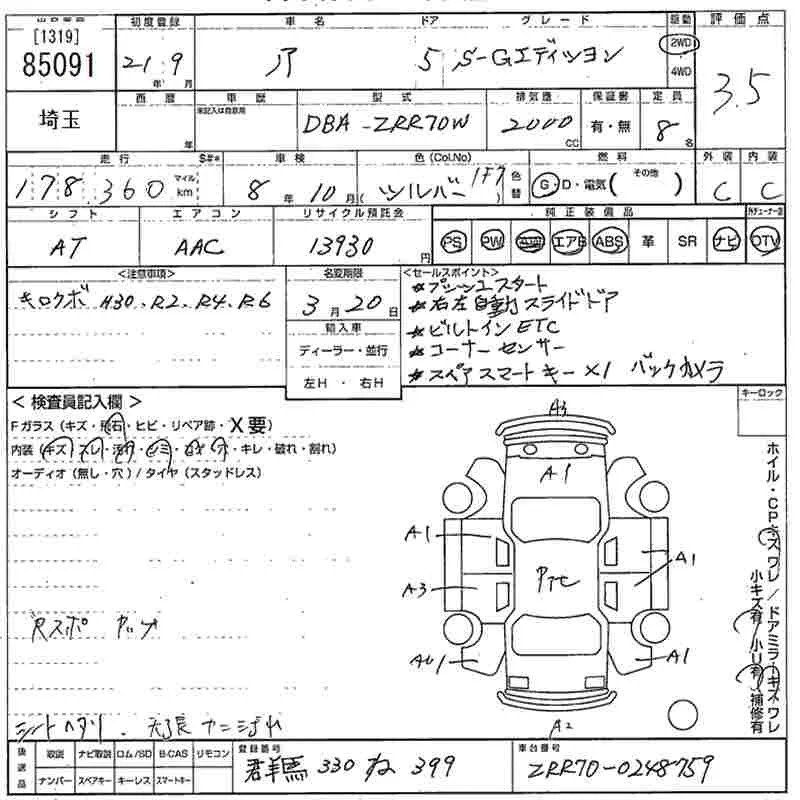 [1319]
85091
埼玉
初度登録
21 9
年 月
車名
ドア
グレード
5 S-Gエディション
駆動
2WD
4WD
評価点
3.5
西暦
年
車歴
未記入は自家用
型式
DBA-ZRR70W
排気量
2000
CC
保証書
有・無
定員
8
名
走行
S#*
178,360
マイル
km
車検
8年 10月
色(Col.No)
シルバー
1F7
色替
燃料
G・D・電気( その他 )
外装 内装
C C
シフト
AT
エアコン
AAC
リサイクル預託金
13930
円
純正装備品
PS PW AW エアB ABS 革 SR ナビ TV
<注意事項>
キロクボ H30、R2、R4、R6
名変期限
3月20日
輸入車
ディーラー・並行
左H ・ 右H
<セールスポイント>
*プッシュスタート
*右左自動スライドドア
*ビルトインETC
*コーナーセンサー
*スペアスマートキー×1 バックカメラ
キーロック
< 検査員記入欄 >
Fガラス (キズ・飛石・ヒビ・リペア跡・X要)
内装 (キズ・スレ・汚れ・シミ・コゲ・穴・キレ・破れ・割れ)
オーディオ (無し・穴) / タイヤ (スタッドレス)
A3
A1
A1
A1
A3
Pタレ
A1
A2
Rスポ
シートヘタリ、天張
ホイル・CPキズ ワレ / ドアミラーキズ ワレ
小キズ有 / 小U有 / 補修有
後送品
取説 ナビ取説 ロム/SD B-CAS リモコン
ナンバー スペアキー キーレス スマートキー
登録番号
群馬 330 ね 399
車台番号
ZRR70-0248759